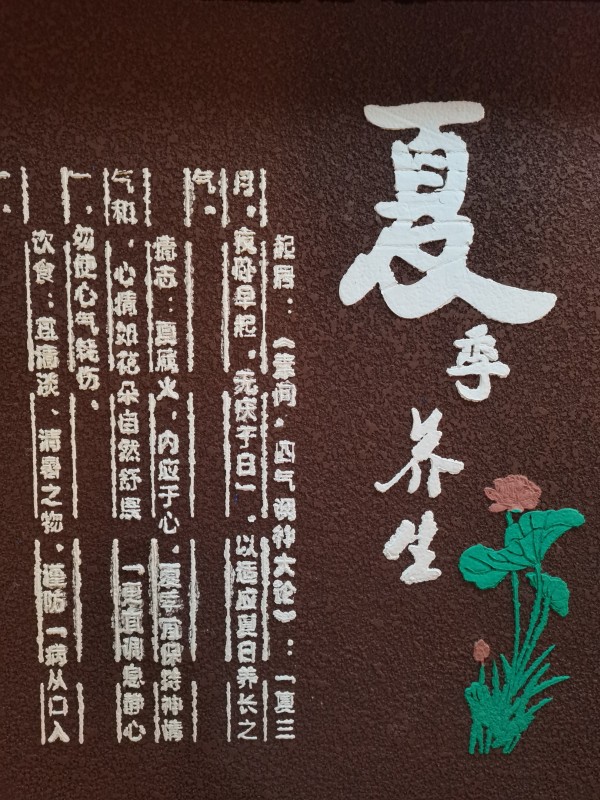 夏季养生
起居：《素问，四气调神大论》：一夏三
月，夜卧早起，无厌于日一，以适应夏日养长之
气。
情志：夏属火，内应于心，夏季宜保持神情
气和，心情如花朵自然舒展 一更宜调息静心
一，勿使心气耗伤。
饮食：宜清淡、清暑之物，谨防一病从口入
一。